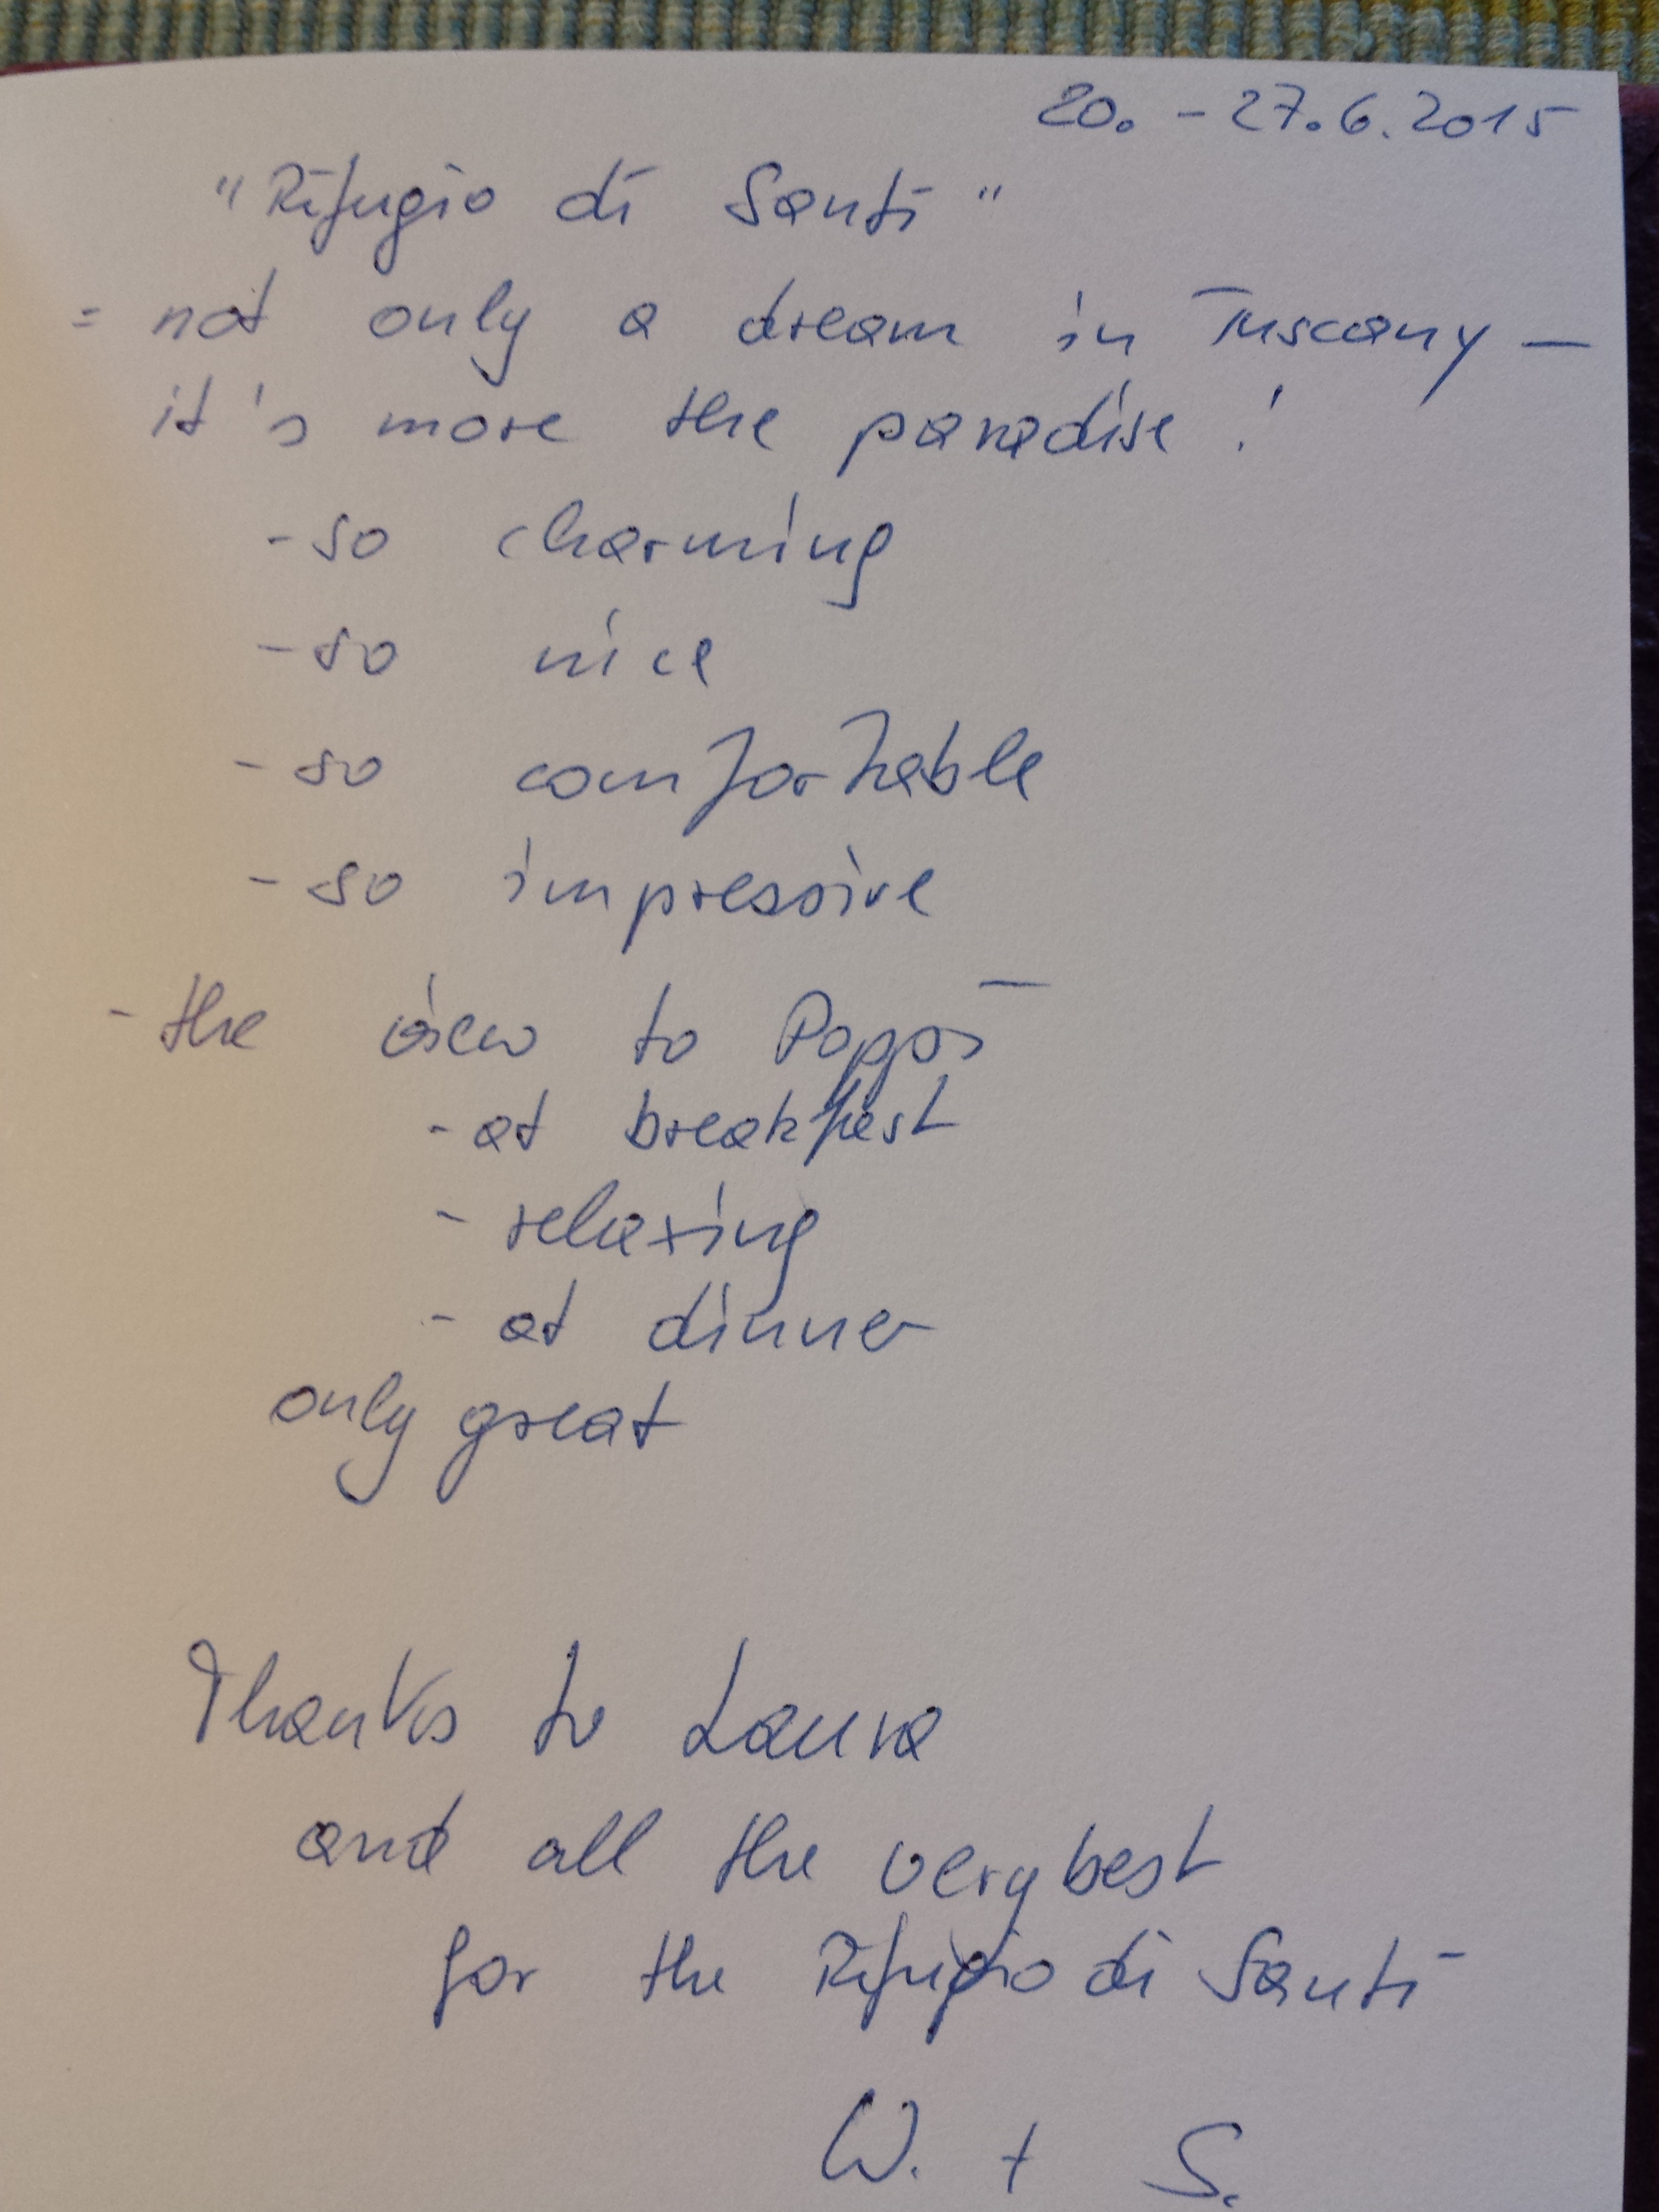 20. - 27.6.2015
"Rifugio di Santi"
= not only a dream in Tuscany —
it's more the paradise!
- so charming
- so nice
- so comfortable
- so impressive
- the view to Poppi
- at breakfast
- relaxing
- at dinner
only great
Thanks to Laura
and all the very best
for the Rifugio di Santi
W. + S.